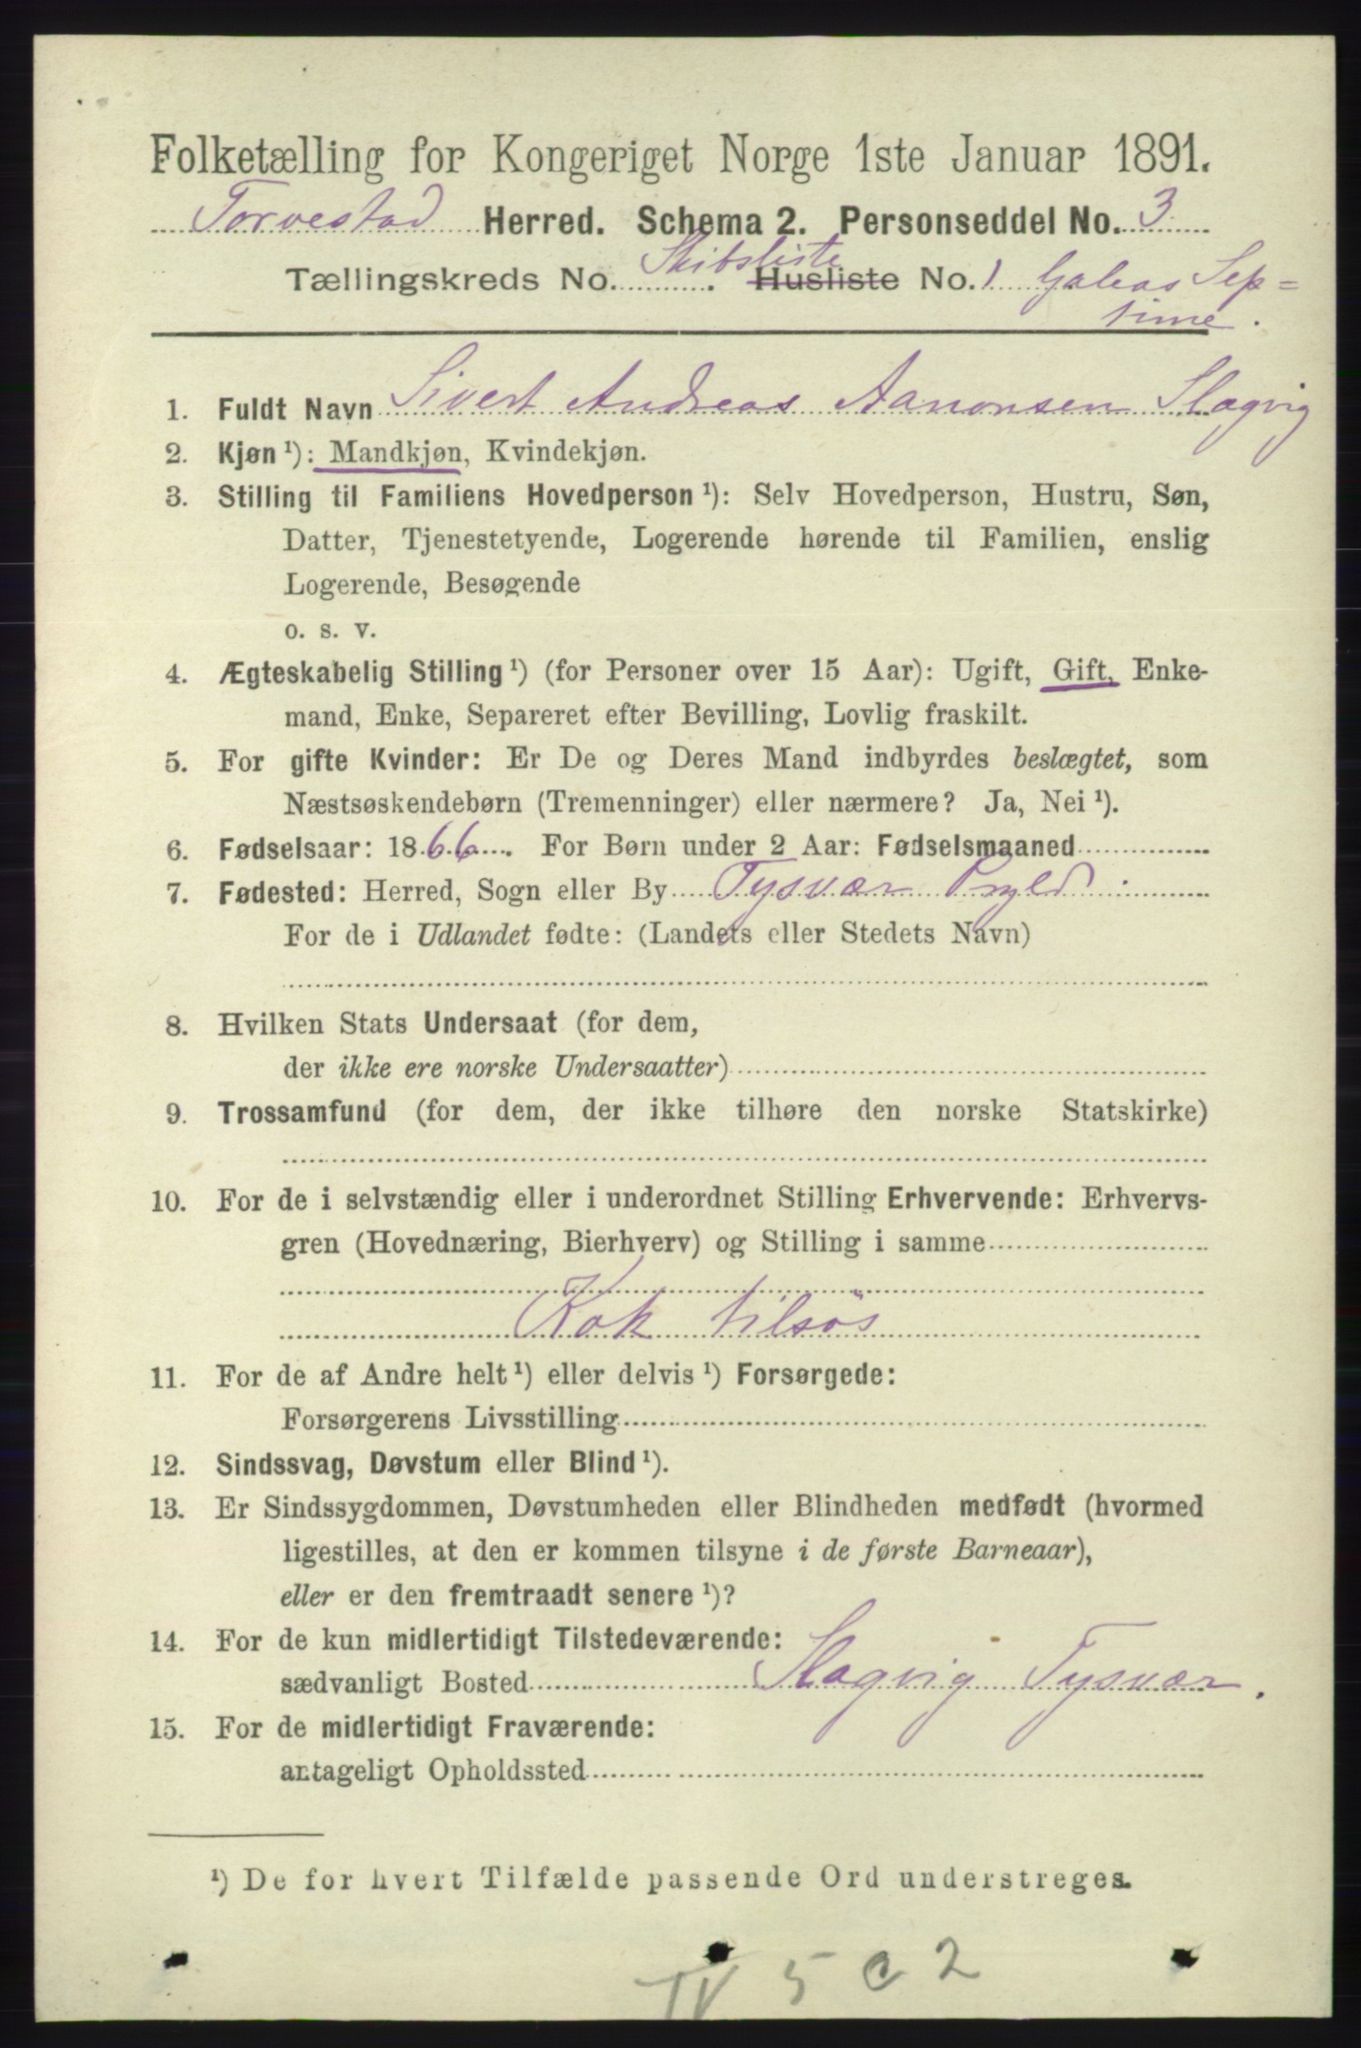 Folketælling for Kongeriget Norge 1ste Januar 1891.
Torvestad Herred. Schema 2. Personseddel No. 3
Tællingskreds No. Skibsliste Husliste No. 1 Galeas Sep=
time.
1. Fuldt Navn Sivert Andreas Aanonsen Slagvig
2. Kjøn ¹): Mandkjøn, Kvindekjøn.
3. Stilling til Familiens Hovedperson ¹): Selv Hovedperson, Hustru, Søn,
Datter, Tjenestetyende, Logerende hørende til Familien, enslig
Logerende, Besøgende
o. s. v.
4. Ægteskabelig Stilling ¹) (for Personer over 15 Aar): Ugift, Gift, Enke-
mand, Enke, Separeret efter Bevilling, Lovlig fraskilt.
5. For gifte Kvinder: Er De og Deres Mand indbyrdes beslægtet, som
Næstsøskendebørn (Tremenninger) eller nærmere? Ja, Nei ¹).
6. Fødselsaar: 1866. For Børn under 2 Aar: Fødselsmaaned
7. Fødested: Herred, Sogn eller By Tysvær Prgld.
For de i Udlandet fødte: (Landets eller Stedets Navn)
8. Hvilken Stats Undersaat (for dem,
der ikke ere norske Undersaatter)
9. Trossamfund (for dem, der ikke tilhøre den norske Statskirke)
10. For de i selvstændig eller i underordnet Stilling Erhvervende: Erhvervs-
gren (Hovednæring, Bierhverv) og Stilling i samme
Kok tilsös
11. For de af Andre helt ¹) eller delvis ¹) Forsørgede:
Forsørgerens Livsstilling
12. Sindssvag, Døvstum eller Blind ¹).
13. Er Sindssygdommen, Døvstumheden eller Blindheden medfødt (hvormed
ligestilles, at den er kommen tilsyne i de første Barneaar),
eller er den fremtraadt senere ¹)?
14. For de kun midlertidigt Tilstedeværende:
sædvanligt Bosted Slagvig Tysvær.
15. For de midlertidigt Fraværende:
antageligt Opholdssted
¹) De for hvert Tilfælde passende Ord understreges.
IV 5 c 2